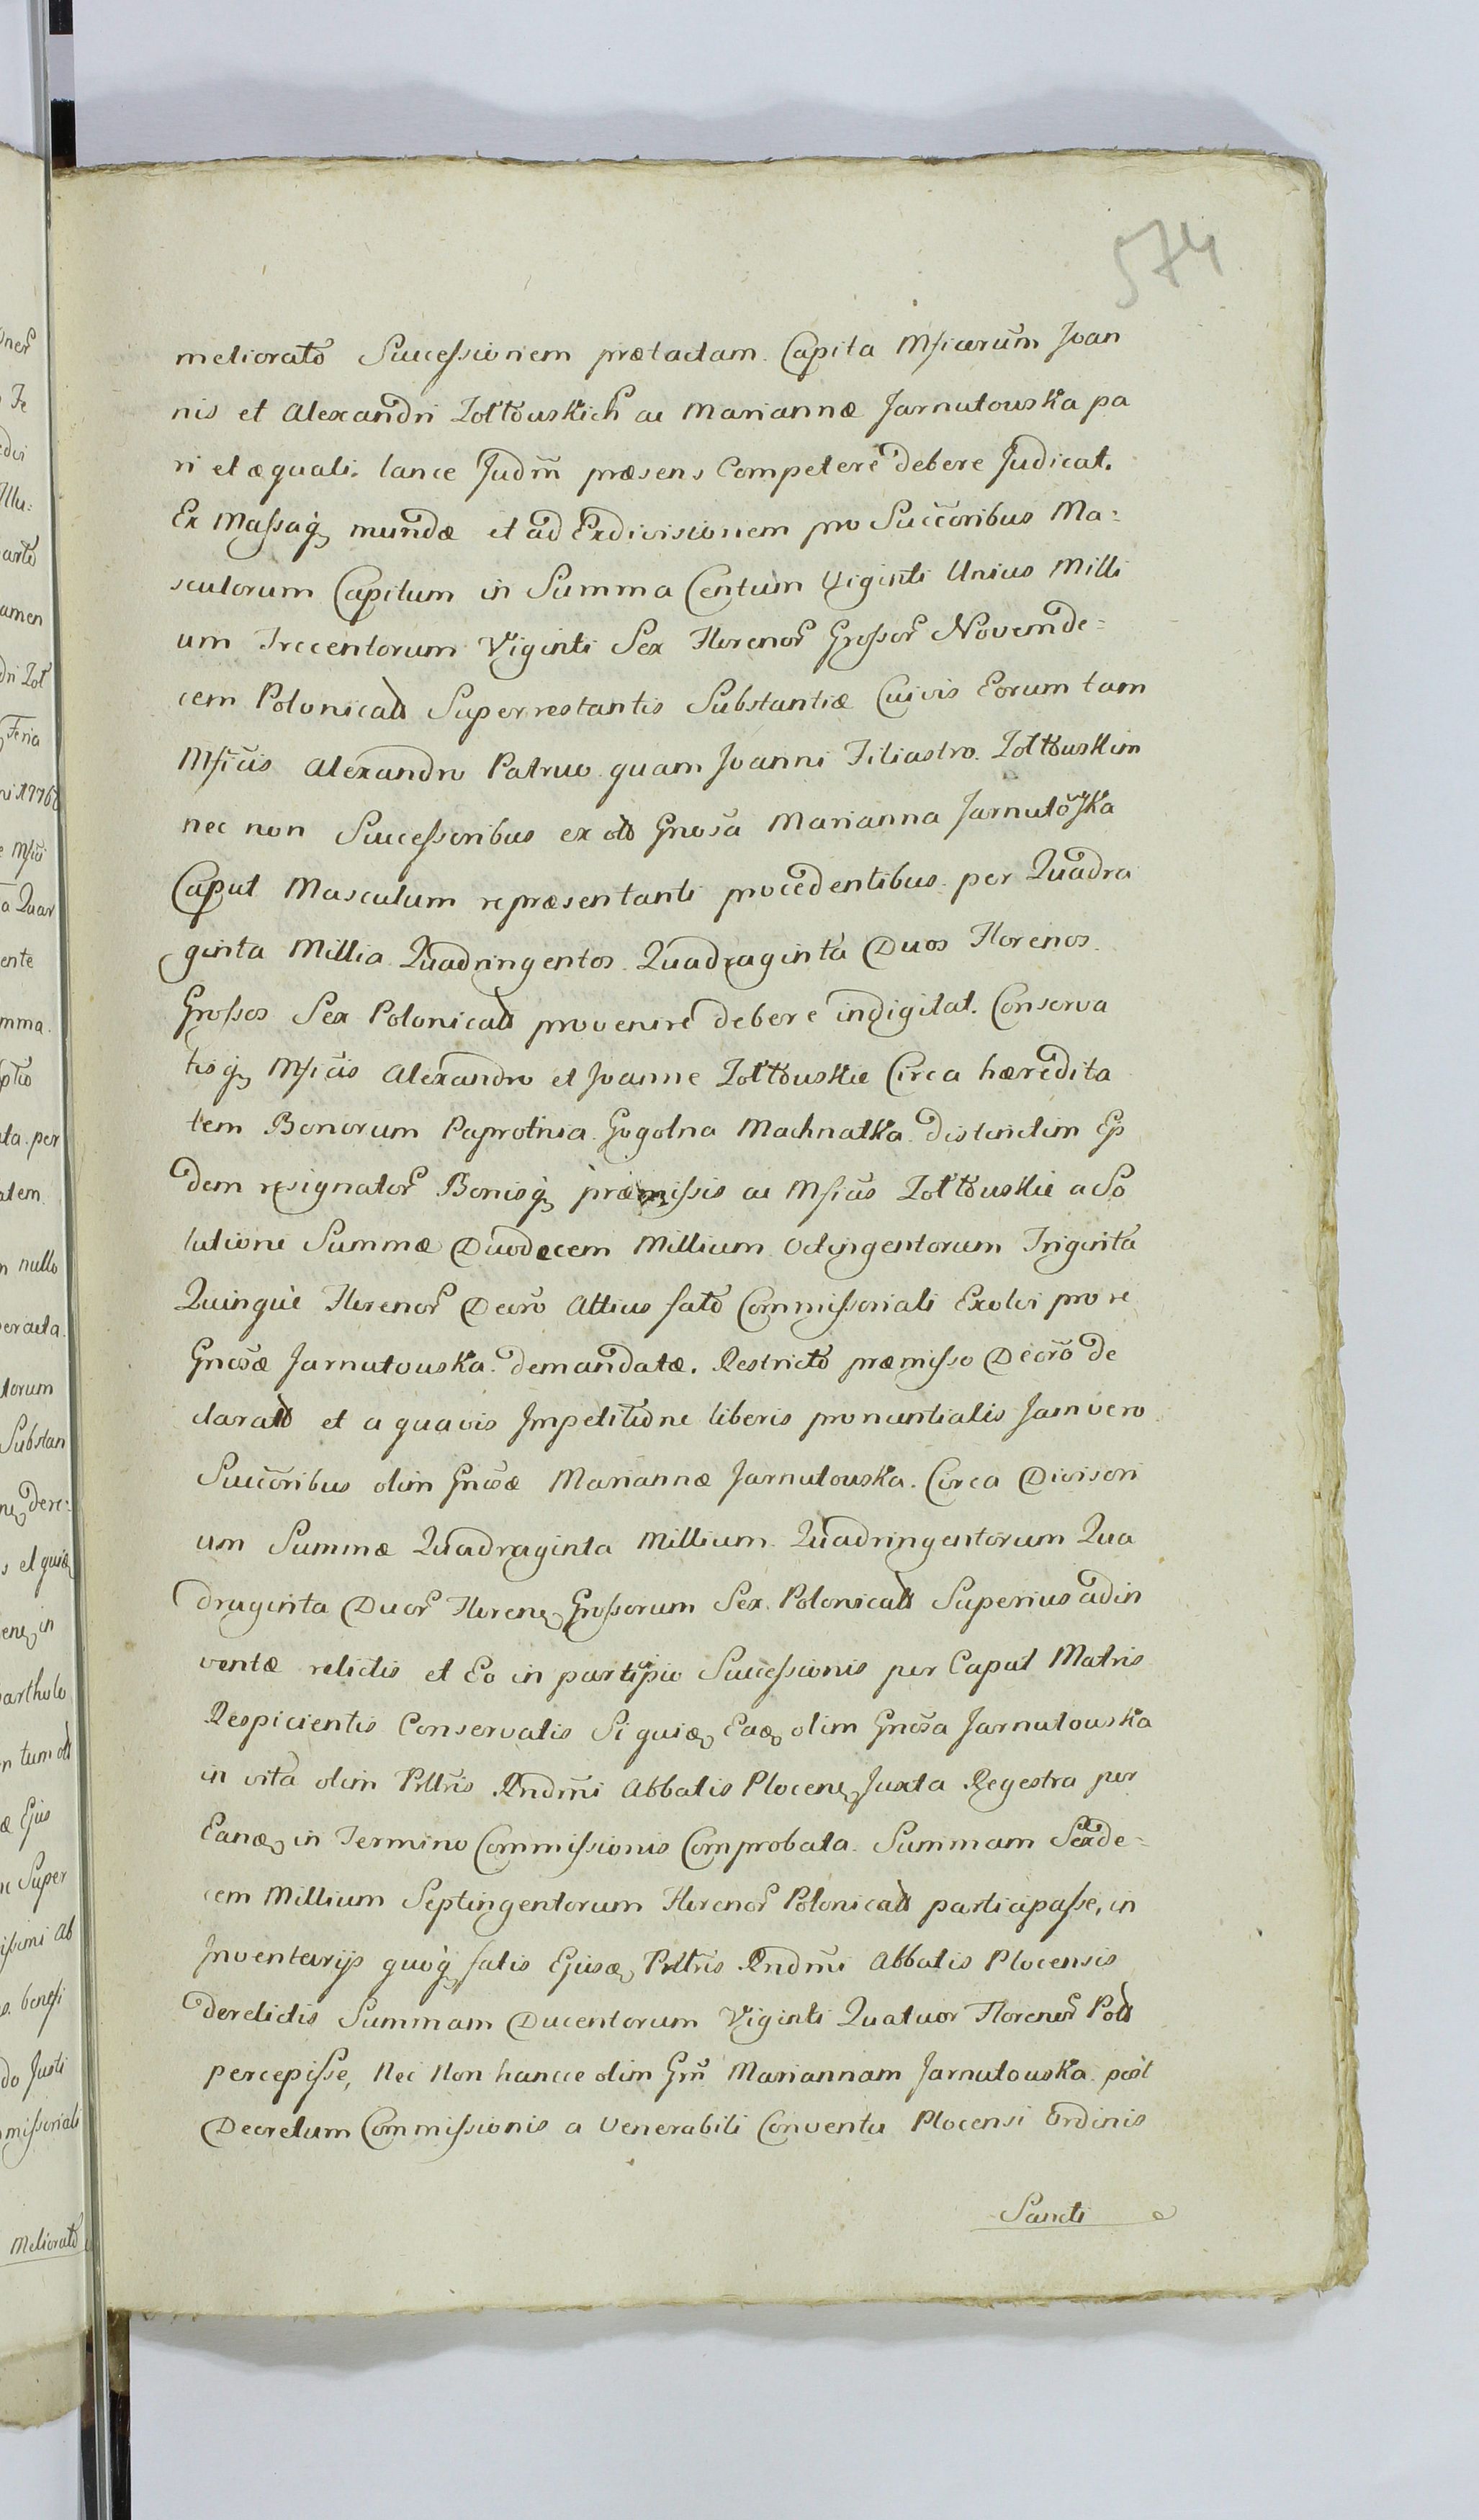 574
meliorato Successionem prætactam. Capita Mficorum Joan
nis et Alexandri Żołtowskich ac Mariannæ Jarnutowska pa
ri et æquali. lance Judm̃ præsens Competere debere Judicat.
Ex Massaq mundæ et ad Exdivisionem pro Succoribus Ma:
sculorum Capitum in Summa Centum Viginti Unius Milli
um Trecentorum Viginti Sex Florenor Grossor Novemde:
cem Polonical Superrestantis Substantiæ Cuivis Eorum tam
Mficis Alexandro Patruo quam Joanni Filiastro. Żołtowskim
nec non Successoribus ex ol Gnosa Marianna Jarnutoska
Caput Masculum repræsentanti procedentibus. per Quadra
ginta Millia Quadringentos. Quadraginta Duos Florenos.
Grossos Sex Polonical provenire debere indigitat. Conserva
tisq Mficis Alexandro et Joanne Żołtowskie Circa hæredita
tem Bonorum Paprotnia. Gogolna Machnatka distinctim Eis
dem resignator Bonisq præmissis ac Mficis Żołtowskie a So
lutione Summæ Duodecem Millium Octingentorum Triginta
Quinque Florenor Decro Altius fato Commissoriali Exolvi pro re
Gnosæ Jarnutowska. demandatæ. Restricto præmisso Decro de
clarato et a quavis Impetitione liberis pronuntiatis Jam vero
Succoribus olim Gnosæ Mariannæ Jarnutowska. Circa Divisori
um Summæ Quadraginta Millium Quadringentorum Qua
draginta Duor Floren Grossorum Sex Polonical Superius adin
ventæ relictis et Eo in partipio Successionis per Caput Matris
Respicientis Conservatis Si quidem Eadem olim Gnosa Jarnutowska
in vita olim Pttris Rndmi Abbatis Plocen Juxta Regestra per
Eandem in Termino Commissionis Comprobata. Summam Sexde:
cem Millium Septingentorum Florenor Polonical participasse, in
Inventarijs quoq fatis Ejusdem Pttris Rndmi Abbatis Plocensis
derelictis Summam Ducentorum Viginti Quatuor Florenor Pol
percepisse, Nec Non hancce olim Gm̃ Mariannam Jarnutowska post
Decretum Commissionis a Venerabili Conventu Plocensi Ordinis
Sancti